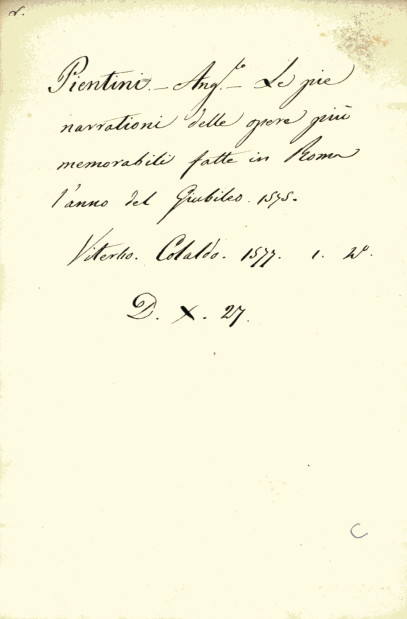 r.
Pientini. - Ang.lo - Le pie
narrationi delle opere più
memorabili fatte in Roma
l'anno del Giubileo. 1575.
Viterbo. Colaldo. 1577. 1. 4º.
D. X. 27.
C